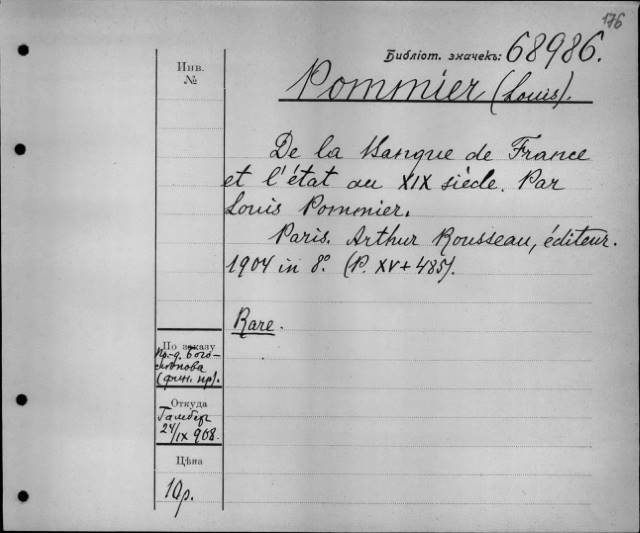 176
Библіот. значекъ: 68986.
Инв.
№
Pommier (Louis).
De la Banque de France
et l'état au XIX siécle. Par
Louis Pommier.
Paris. Arthur Rousseau, éditeur.
1904 in 8°. (P. XV + 485).
Rare.
По заказу
Пр-д. Бого-
лѣпова
(фин. пр).
Откуда
Гамбер
24/IX 908.
Цѣна
10р.